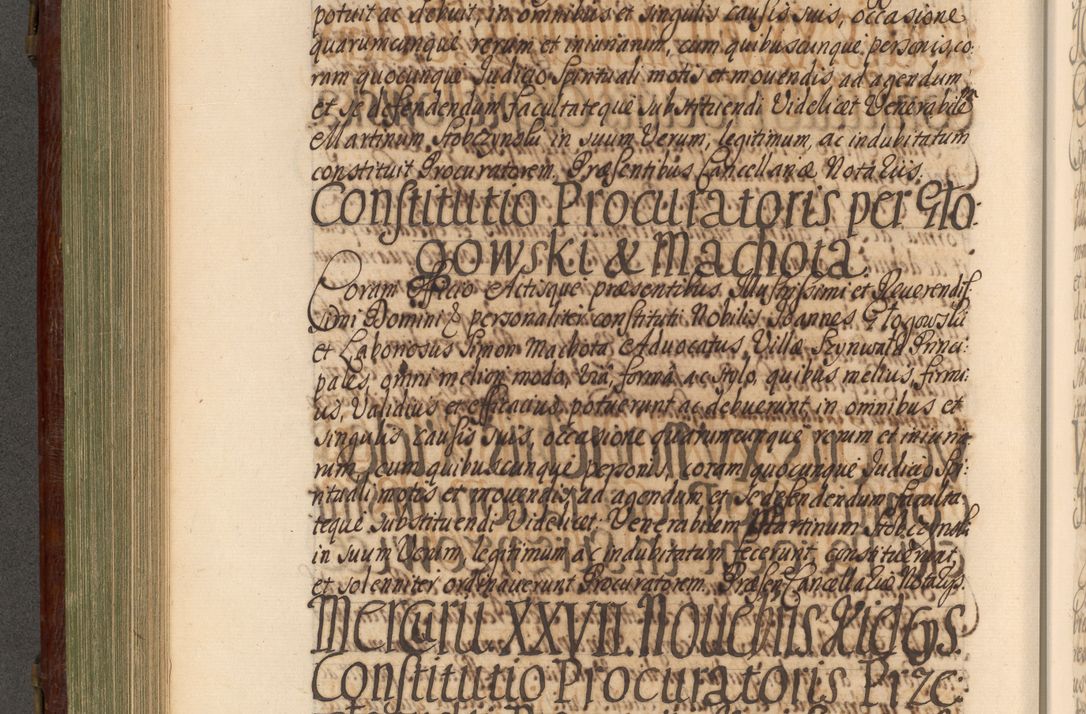 potuit ac debuit, in omnibus et singulis causis suis, occasione
quarumcunque rerum et iniuriarum, cum quibuscunque personis, co
ram quocunque Judicio Spirituali motis et mouendis ad agendum
et se defendendum facultateque substituendi Videlicet Venerabilem
Martinum Stobczynski in suum Verum, legitimum, ac indubitatum
constituit Procuratorem. Præsentibus Cancellariæ Notariis.
Constitutio Procuratoris per Gło-
gowski & Machota.
Coram Officio Actisque præsentibus Illustrissimi et Reuerendis
simi Domini personaliter constituti Nobilis Joannes Głogowski
et Laboriosus Simon Machota Aduocatus Villæ Szynwałd Princi:
pales, omni meliori modo, via, forma ac stylo, quibus melius, firmi:
us, Validius et efficacius potuerunt ac debuerunt in omnibus et
singulis causis suis, occasione quarumcunque rerum et iniuria
rum, cum quibuscunque personis, coram quocunque Judicio Spi:
rituali motis et mouendis ad agendum, et se defendendum faculta
teque substituendi Videlicet Venerabilem Martinum Stobczynski
in suum Verum, legitimum ac indubitatum fecerunt, constituerunt,
et solenniter ordinauerunt Procuratorem. Præsen: Cancellariæ Notarijs.
Mercurii XXVII. Nouembris
Constitutio Procuratoris Prze: